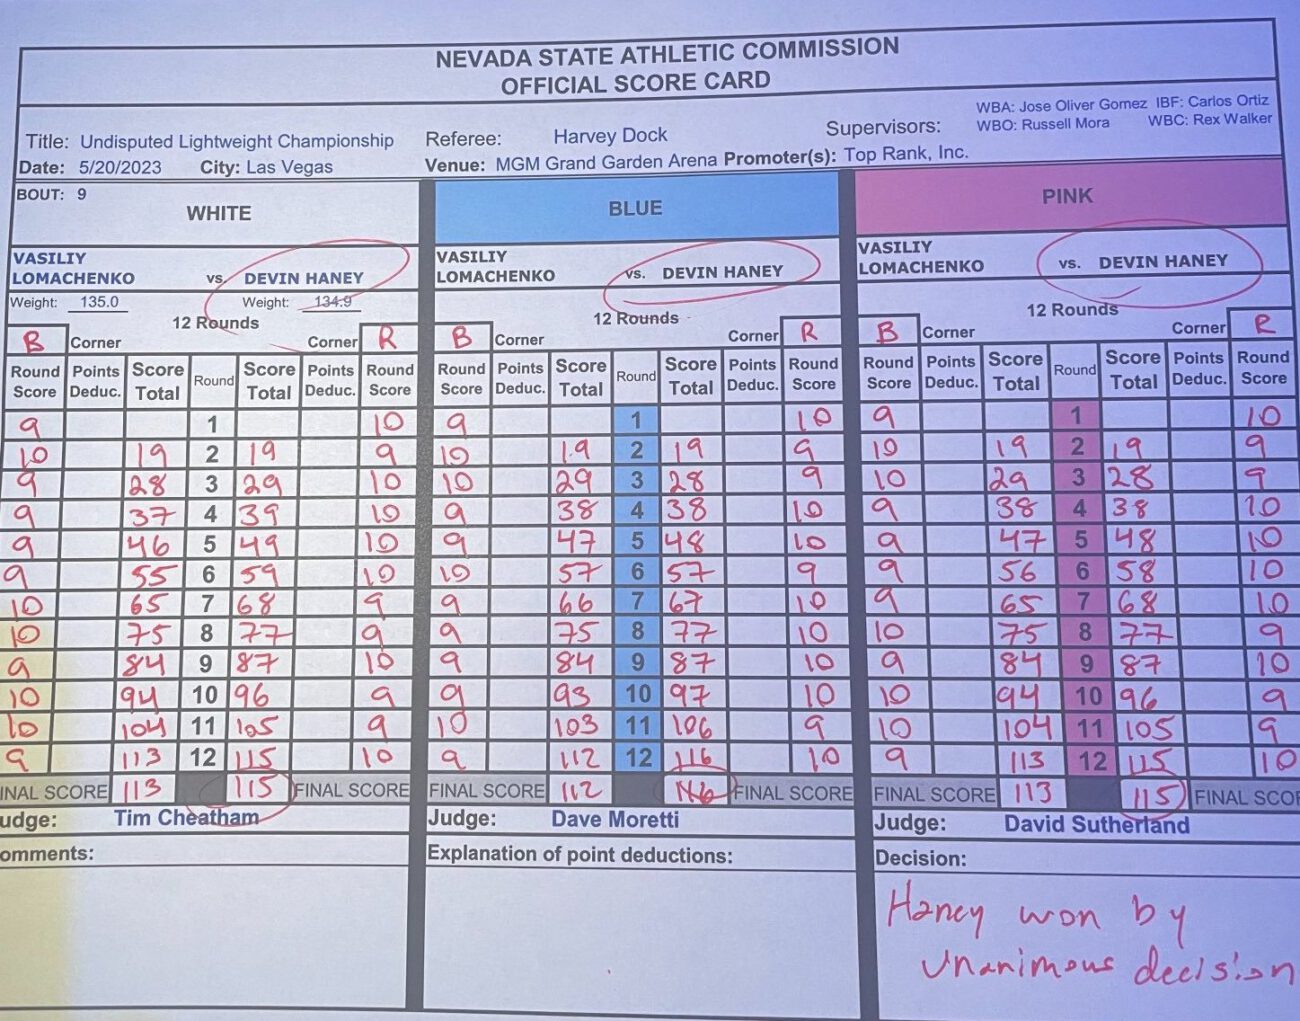 NEVADA STATE ATHLETIC COMMISSION
OFFICIAL SCORE CARD
Title: Undisputed Lightweight Championship Referee: Harvey Dock Supervisors: WBA: Jose Oliver Gomez IBF: Carlos Ortiz
WBO: Russell Mora WBC: Rex Walker
Date: 5/20/2023 City: Las Vegas Venue: MGM Grand Garden Arena Promoter(s): Top Rank, Inc.
BOUT: 9
WHITE BLUE PINK
VASILIY LOMACHENKO vs. DEVIN HANEY VASILIY LOMACHENKO vs. DEVIN HANEY VASILIY LOMACHENKO vs. DEVIN HANEY
Weight: 135.0 Weight: 134.9
12 Rounds 12 Rounds 12 Rounds
B Corner Corner R B Corner Corner R B Corner Corner R
Round Score Points Deduc. Score Total Round Score Total Points Deduc. Round Score Round Score Points Deduc. Score Total Round Score Total Points Deduc. Round Score Round Score Points Deduc. Score Total Round Score Total Points Deduc. Round Score
9 1 10 9 1 10 9 1 10
10 19 2 19 9 10 19 2 19 9 10 19 2 19 9
9 28 3 29 10 10 29 3 28 9 10 29 3 28 9
9 37 4 39 10 9 38 4 38 10 9 38 4 38 10
9 46 5 49 10 9 47 5 48 10 9 47 5 48 10
9 55 6 59 10 10 57 6 57 9 9 56 6 58 10
10 65 7 68 9 9 66 7 67 10 9 65 7 68 10
10 75 8 77 9 9 75 8 77 10 10 75 8 77 9
9 84 9 87 10 9 84 9 87 10 9 84 9 87 10
10 94 10 96 9 9 93 10 97 10 10 94 10 96 9
10 104 11 105 9 10 103 11 106 9 10 104 11 105 9
9 113 12 115 10 9 112 12 116 10 9 113 12 115 10
INAL SCORE 113 115 FINAL SCORE FINAL SCORE 112 116 FINAL SCORE FINAL SCORE 113 115 FINAL SCO
udge: Tim Cheatham Judge: Dave Moretti Judge: David Sutherland
omments: Explanation of point deductions: Decision:
Haney won by
unanimous decision